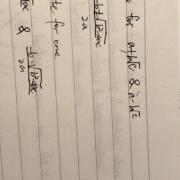 for a+b√c & a-b√c
-b+√b²-4ac
2a
for one
& -b-√b²-4ac
2a